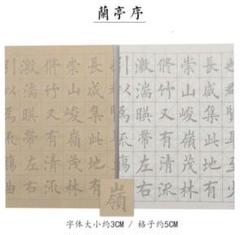 蘭亭序
長咸集此
崇山峻嶺茂林
脩竹又有清流
激湍暎帶左右
引以為流觴曲
長咸集此地有
崇山峻嶺茂林
脩竹又有清流
激湍暎帶左右
引以為流
嶺
字体大小约3CM / 格子约5CM